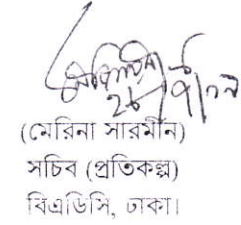 (মেরিনা সারমীন)
সচিব (প্রতিকল্প)
বিএডিসি, ঢাকা।